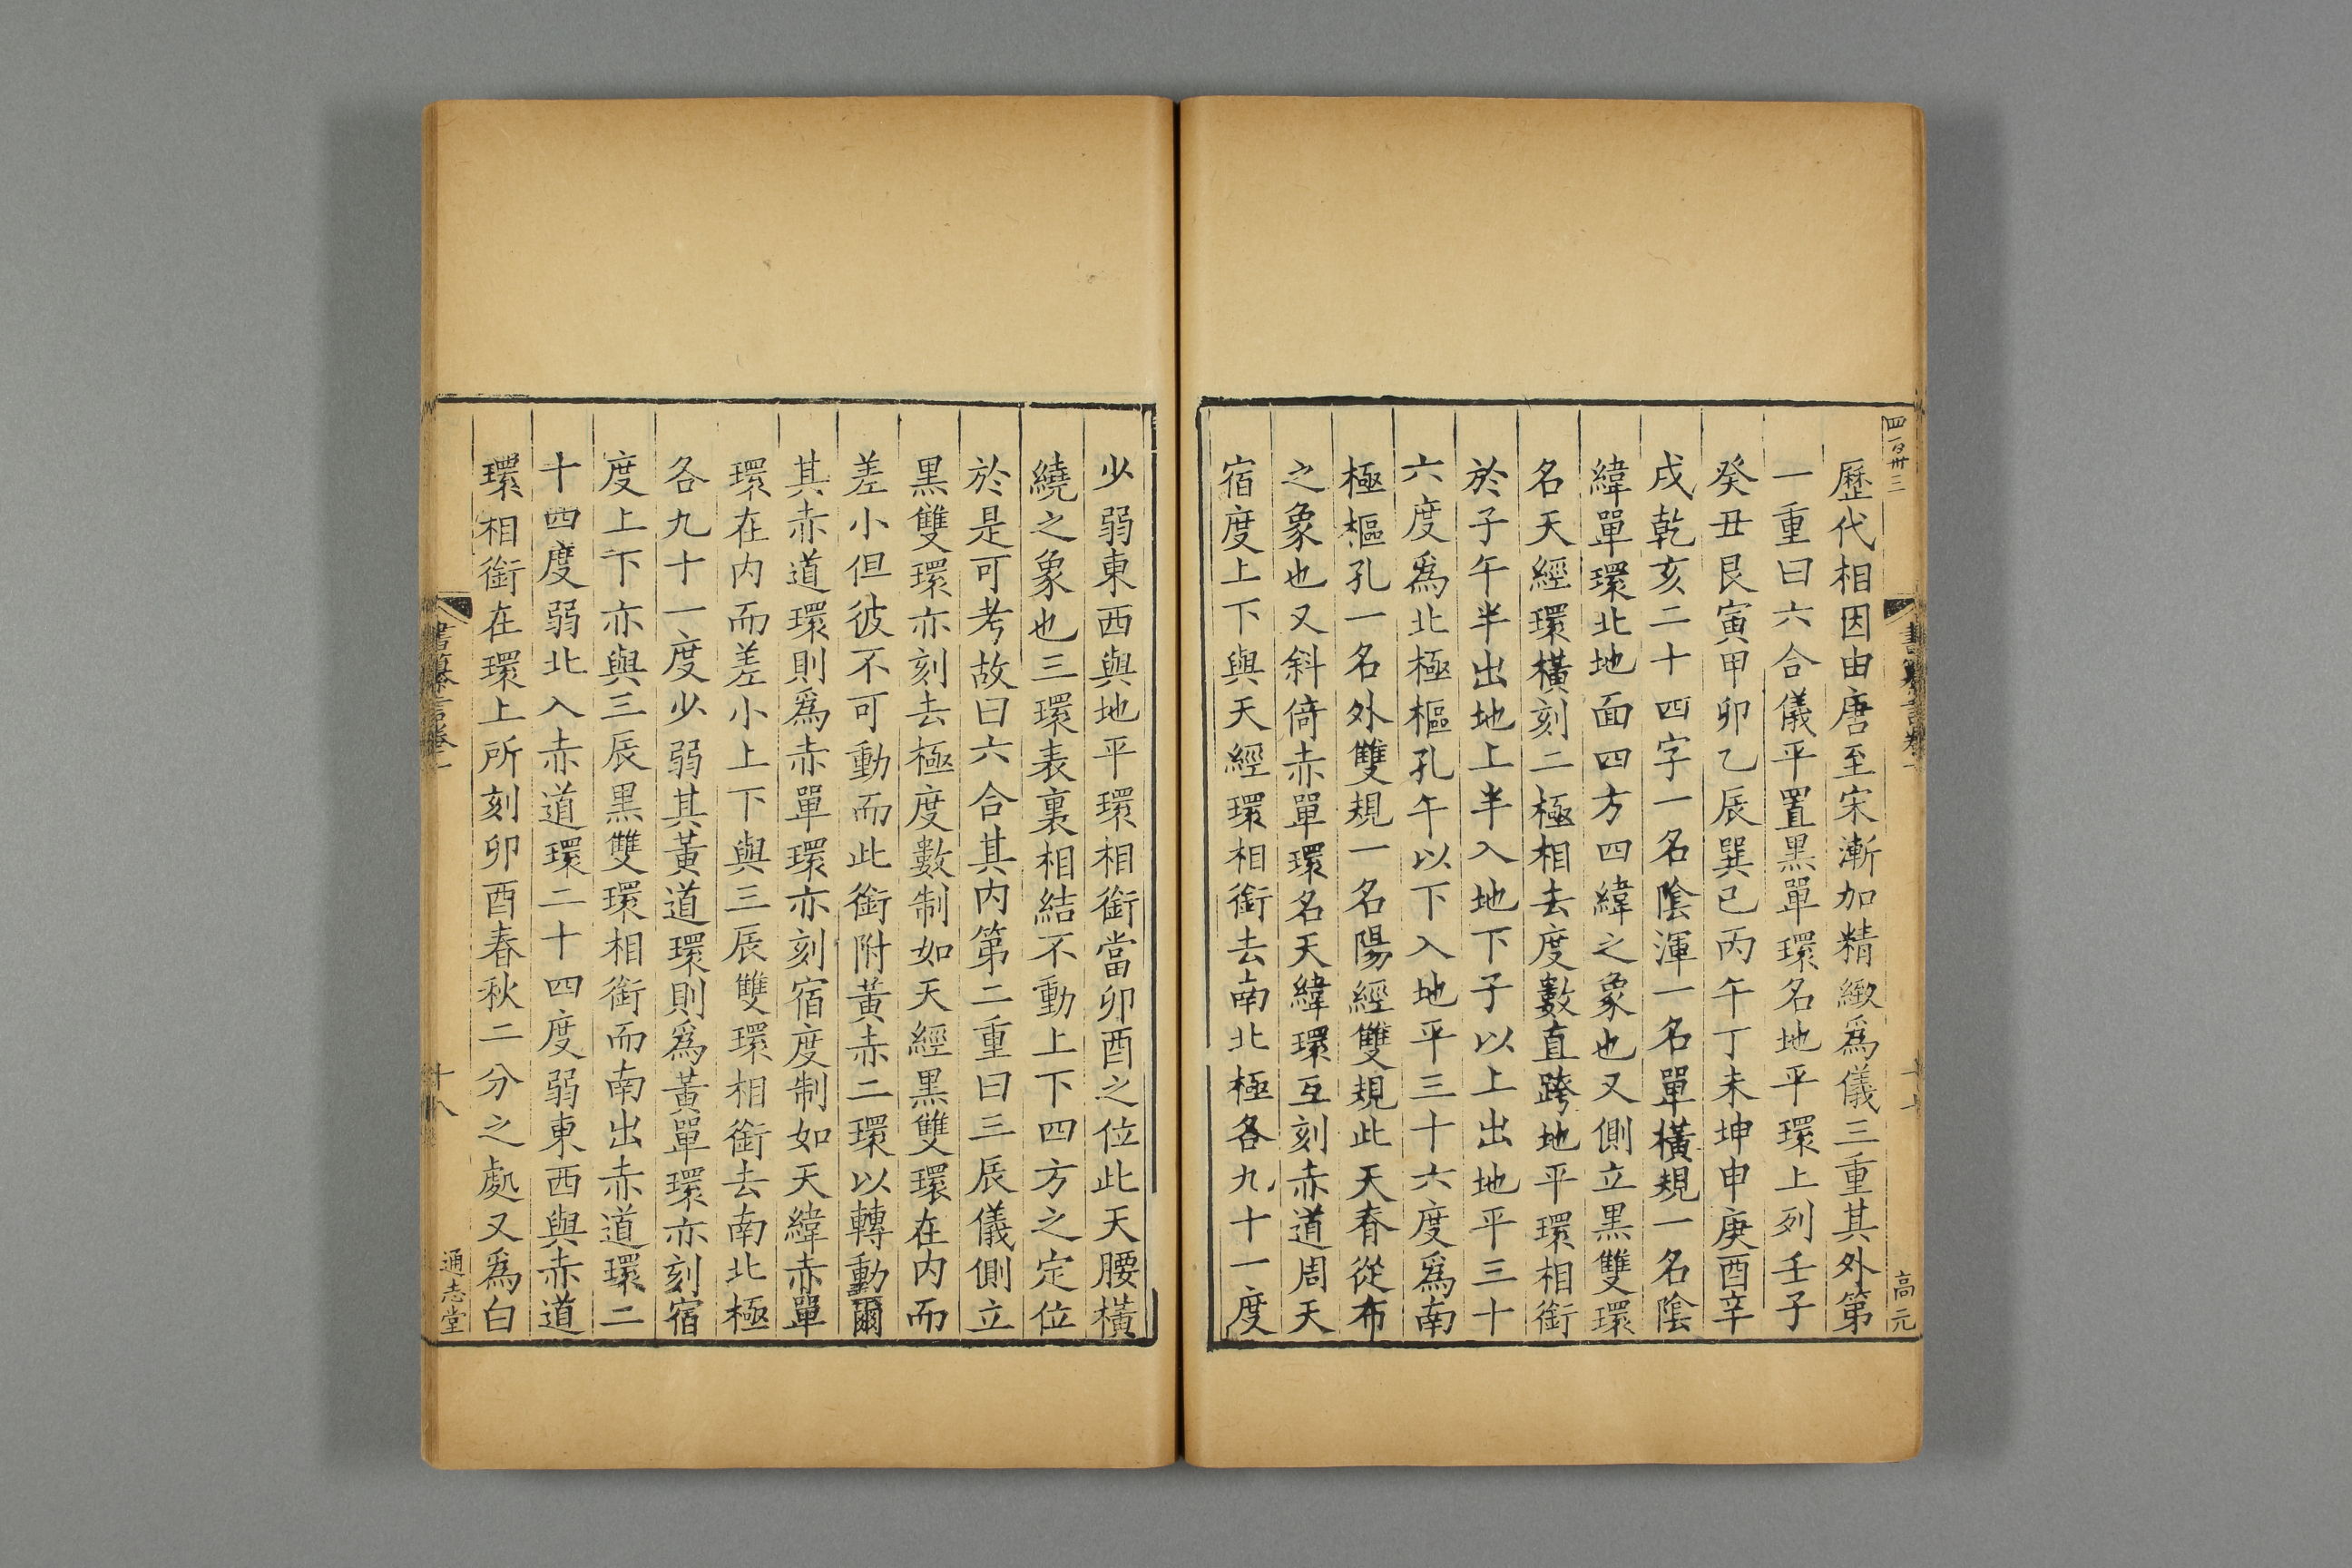 四百卅三
高元
歷代相因由唐至宋漸加精緻爲儀三重其外第
一重曰六合儀平置黑單環名地平環上列壬子
癸丑艮寅甲卯乙辰巽巳丙午丁未坤申庚酉辛
戌乾亥二十四字一名陰渾一名單橫規一名陰
緯單環北地面四方四緯之象也又側立黑雙環
名天經環橫刻二極相去度數直跨地平環相銜
於子午半出地上半入地下子以上出地平三十
六度爲北極樞孔午以下入地平三十六度爲南
極樞孔一名外雙規一名陽經雙規此天脊從布
之象也又斜倚赤單環名天緯環互刻赤道周天
宿度上下與天經環相銜去南北極各九十一度
少弱東西與地平環相銜當卯酉之位此天腰橫
繞之象也三環表裏相結不動上下四方之定位
於是可考故曰六合其内第二重曰三辰儀側立
黑雙環亦刻去極度數制如天經黑雙環在内而
差小但彼不可動而此銜附黃赤二環以轉動爾
其赤道環則爲赤單環亦刻宿度制如天緯赤單
環在内而差小上下與三辰雙環相銜去南北極
各九十一度少弱其黃道環則爲黃單環亦刻宿
度上下亦與三辰黑雙環相銜而南出赤道環二
十四度弱北入赤道環二十四度弱東西與赤道
環相銜在環上所刻卯酉春秋二分之處又爲白
十八
通志堂